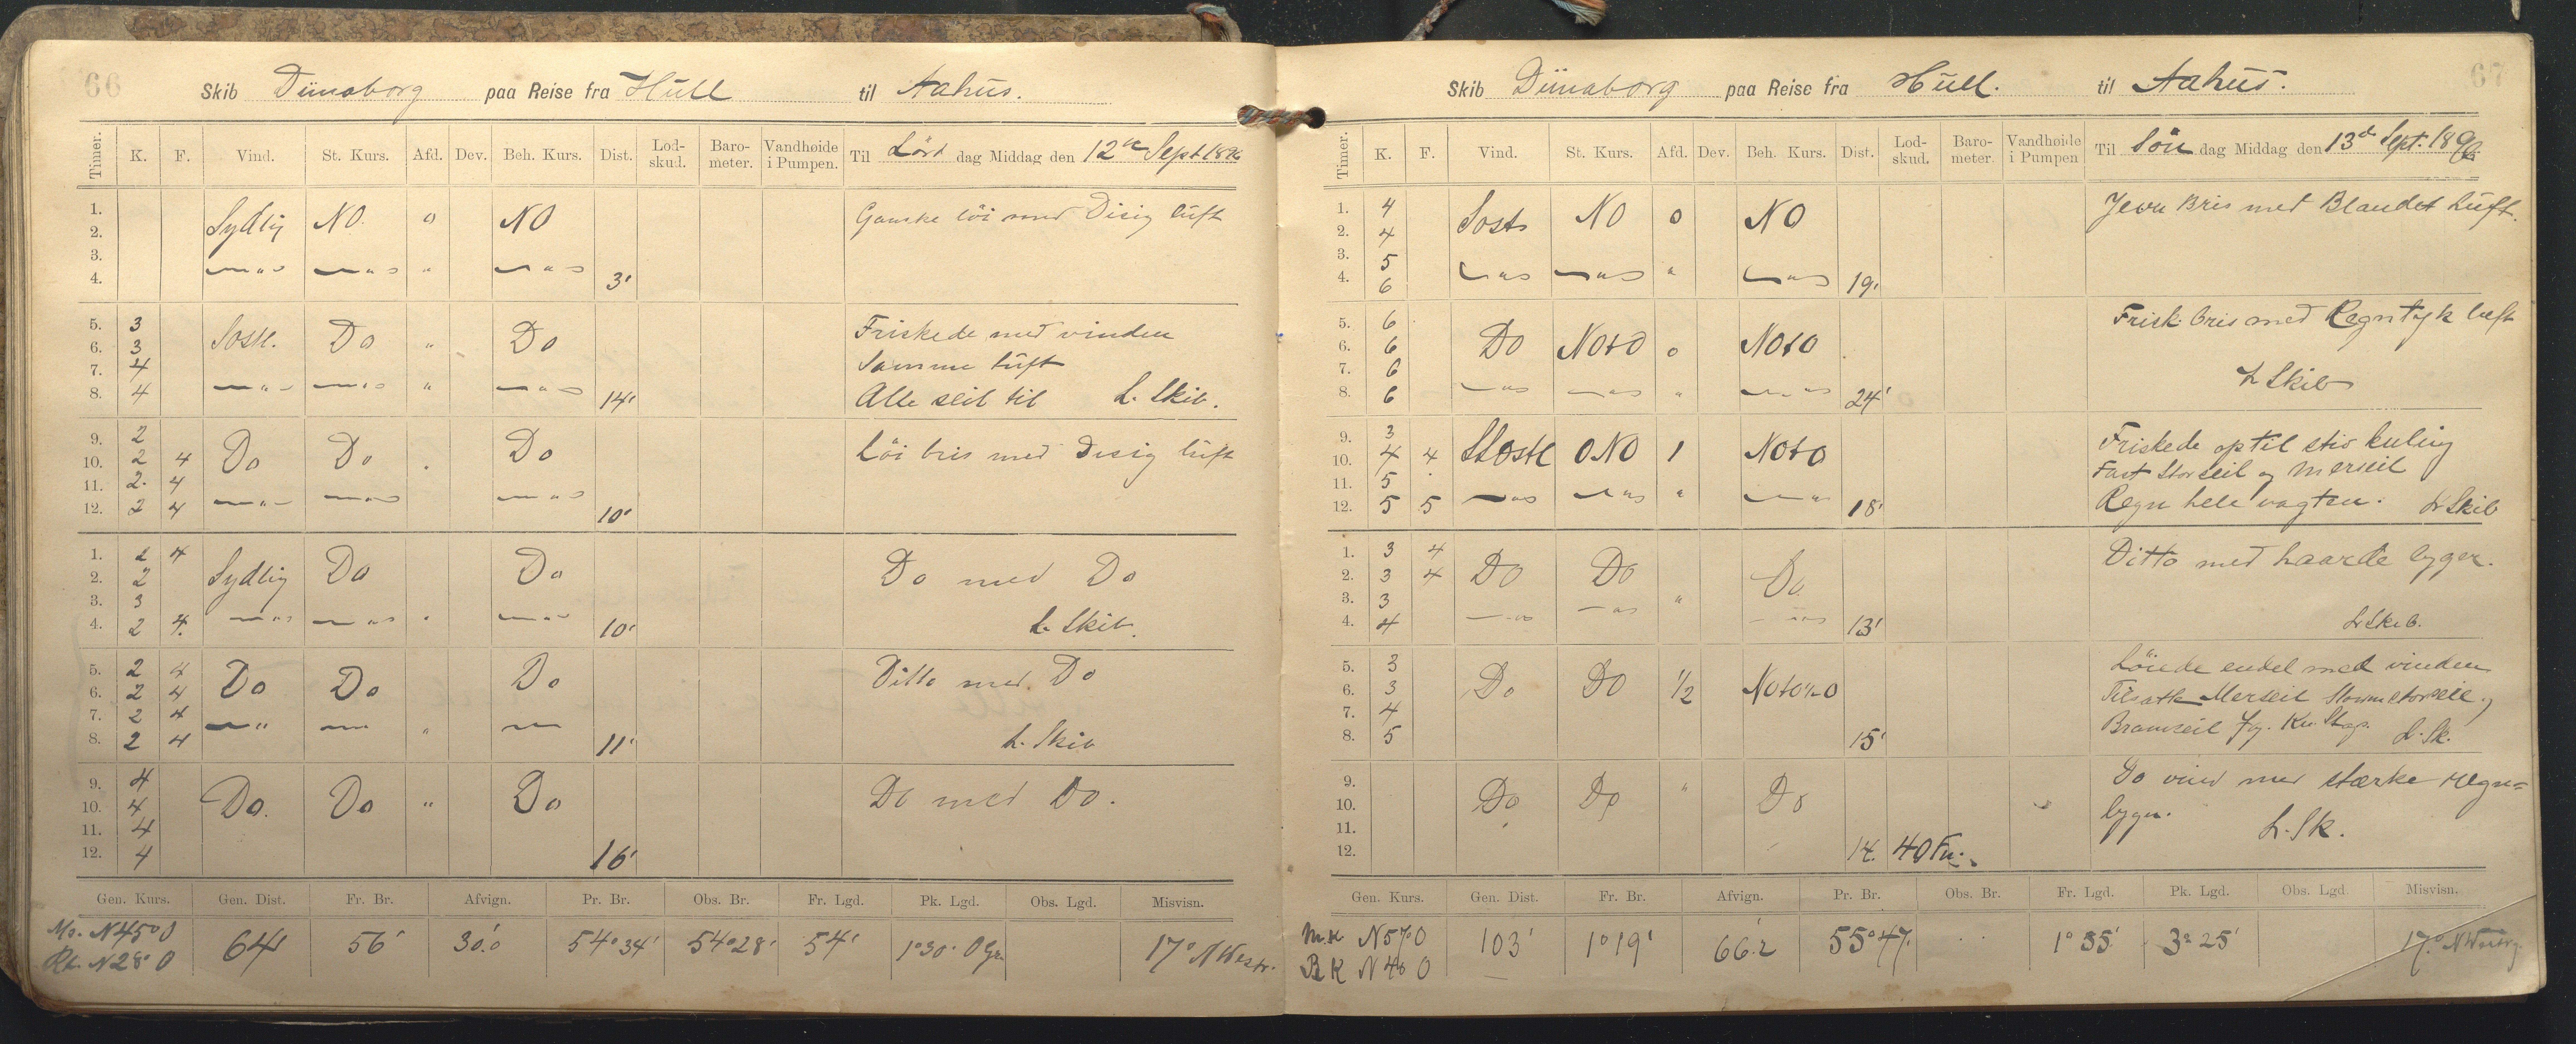 66
Skib Dünaborg paa Reise fra Hull til Aahus.
Timer. K. F. Vind. St. Kurs. Afd. Dev. Beh. Kurs. Dist. Lod-skud. Baro-meter. Vandhøide i Pumpen. Til Lörd dag Middag den 12te Sept 1896
1. Sydlig NO. 0 NO Ganske löi med Disig luft
2.
3.
4. 3'
5. 3 Sostl. Do " Do Friskede med vinden
6. 3 Samme luft
7. 4
8. 4 14' Alle seil til L. Skib.
9. 2 Do Do Do Löi bris med Disig luft
10. 2 4
11. 2. 4
12. 2 4 10'
1. 2 4 Sydlig Do Do Do med Do
2. 2
3. 3
4. 2 4. 10' L. Skib.
5. 2 4 Do Do Do Ditto med Do
6. 2 4
7. 2 4
8. 2 4 11' L. Skib
9. 4 Do. Do " Do Do med Do.
10. 4
11. 4
12. 4 16'
Gen. Kurs. Gen. Dist. Fr. Br. Afvign. Pr. Br. Obs. Br. Fr. Lgd. Pk. Lgd. Obs. Lgd. Misvisn.
Ms. N45°O 64 56' 30.'0 54°34' 54°28' 54' 1°30' O Gr. 17° N Westr.
Rt. N28°O
67
Skib Dünaborg paa Reise fra Hull. til Aahus.
Timer. K. F. Vind. St. Kurs. Afd. Dev. Beh. Kurs. Dist. Lod-skud. Baro-meter. Vandhøide i Pumpen Til Sön dag Middag den 13de Sept. 1896.
1. 4 Sost NO 0 NO Jevn Bris med Blandet Luft.
2. 4
3. 5
4. 6 19'
5. 6 Do NOtO 0 NOtO Frisk bris med Regntyk luft
6. 6
7. 6
8. 6 24' L Skib
9. 3 SSOstl ONO 1 NOtO Friskede op til stiv kuling
10. 4 4 Fast Storseil og Merseil
11. 5
12. 5 5 18' Regn hele vagten. L Skib
1. 3 4 Do Do Do Ditto med haarde byger.
2. 3 4
3. 3 "
4. 4 13' L Skib.
5. 3 Do Do 1/2 NOtO1/2O Löiede endel med vinden
6. 3 Tilsatte Merseil Stumstorseil og
7. 4 Bramseil Jg. Kv. Stag. L. Sk.
8. 5 15'
9. Do Do " Do Do vind med stærke regn=
10. byger.
11. L. Sk.
12. 14. 40 Fv.
Gen. Kurs. Gen. Dist. Fr. Br. Afvign. Pr. Br. Obs. Br. Fr. Lgd. Pk. Lgd. Obs. Lgd. Misvisn.
M.K N57°O 103' 1°19' 66.'2 55°47' 1°55' 3°25' 17° N Westrg.
R K N40 O